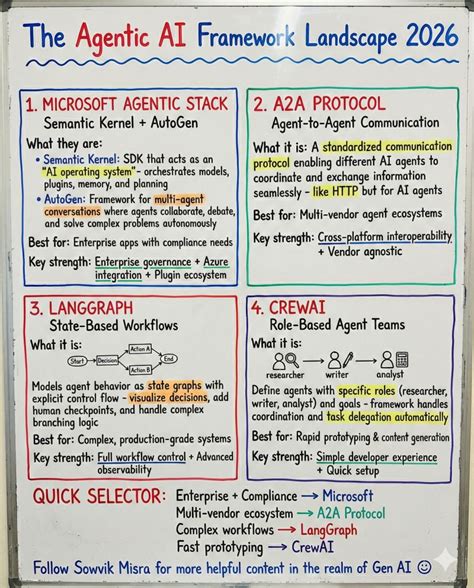 The Agentic AI Framework Landscape 2026
1. MICROSOFT AGENTIC STACK
Semantic Kernel + AutoGen
What they are:
• Semantic Kernel: SDK that acts as an
"AI operating system" - orchestrates models,
plugins, memory, and planning
• AutoGen: Framework for multi-agent
conversations where agents collaborate, debate,
and solve complex problems autonomously
Best for: Enterprise apps with compliance needs
Key strength: Enterprise governance + Azure
integration + Plugin ecosystem
2. A2A PROTOCOL
Agent-to-Agent Communication
What it is: A standardized communication
protocol enabling different AI agents to
coordinate and exchange information
seamlessly - like HTTP but for AI agents
Best for: Multi-vendor agent ecosystems
Key strength: Cross-platform interoperability
+ Vendor agnostic
3. LANGGRAPH
State-Based Workflows
What it is:
Start
Decision
Action A
Action B
End
Models agent behavior as state graphs with
explicit control flow - visualize decisions, add
human checkpoints, and handle complex
branching logic
Best for: Complex, production-grade systems
Key strength: Full workflow control + Advanced
observability
4. CREWAI
Role-Based Agent Teams
What it is:
researcher writer analyst
Define agents with specific roles (researcher,
writer, analyst) and goals - framework handles
coordination and task delegation automatically
Best for: Rapid prototyping & content generation
Key strength: Simple developer experience
+ Quick setup
QUICK SELECTOR: Enterprise + Compliance → Microsoft
Multi-vendor ecosystem → A2A Protocol
Complex workflows → LangGraph
Fast prototyping → CrewAI
Follow Sowvik Misra for more helpful content in the realm of Gen AI ☺